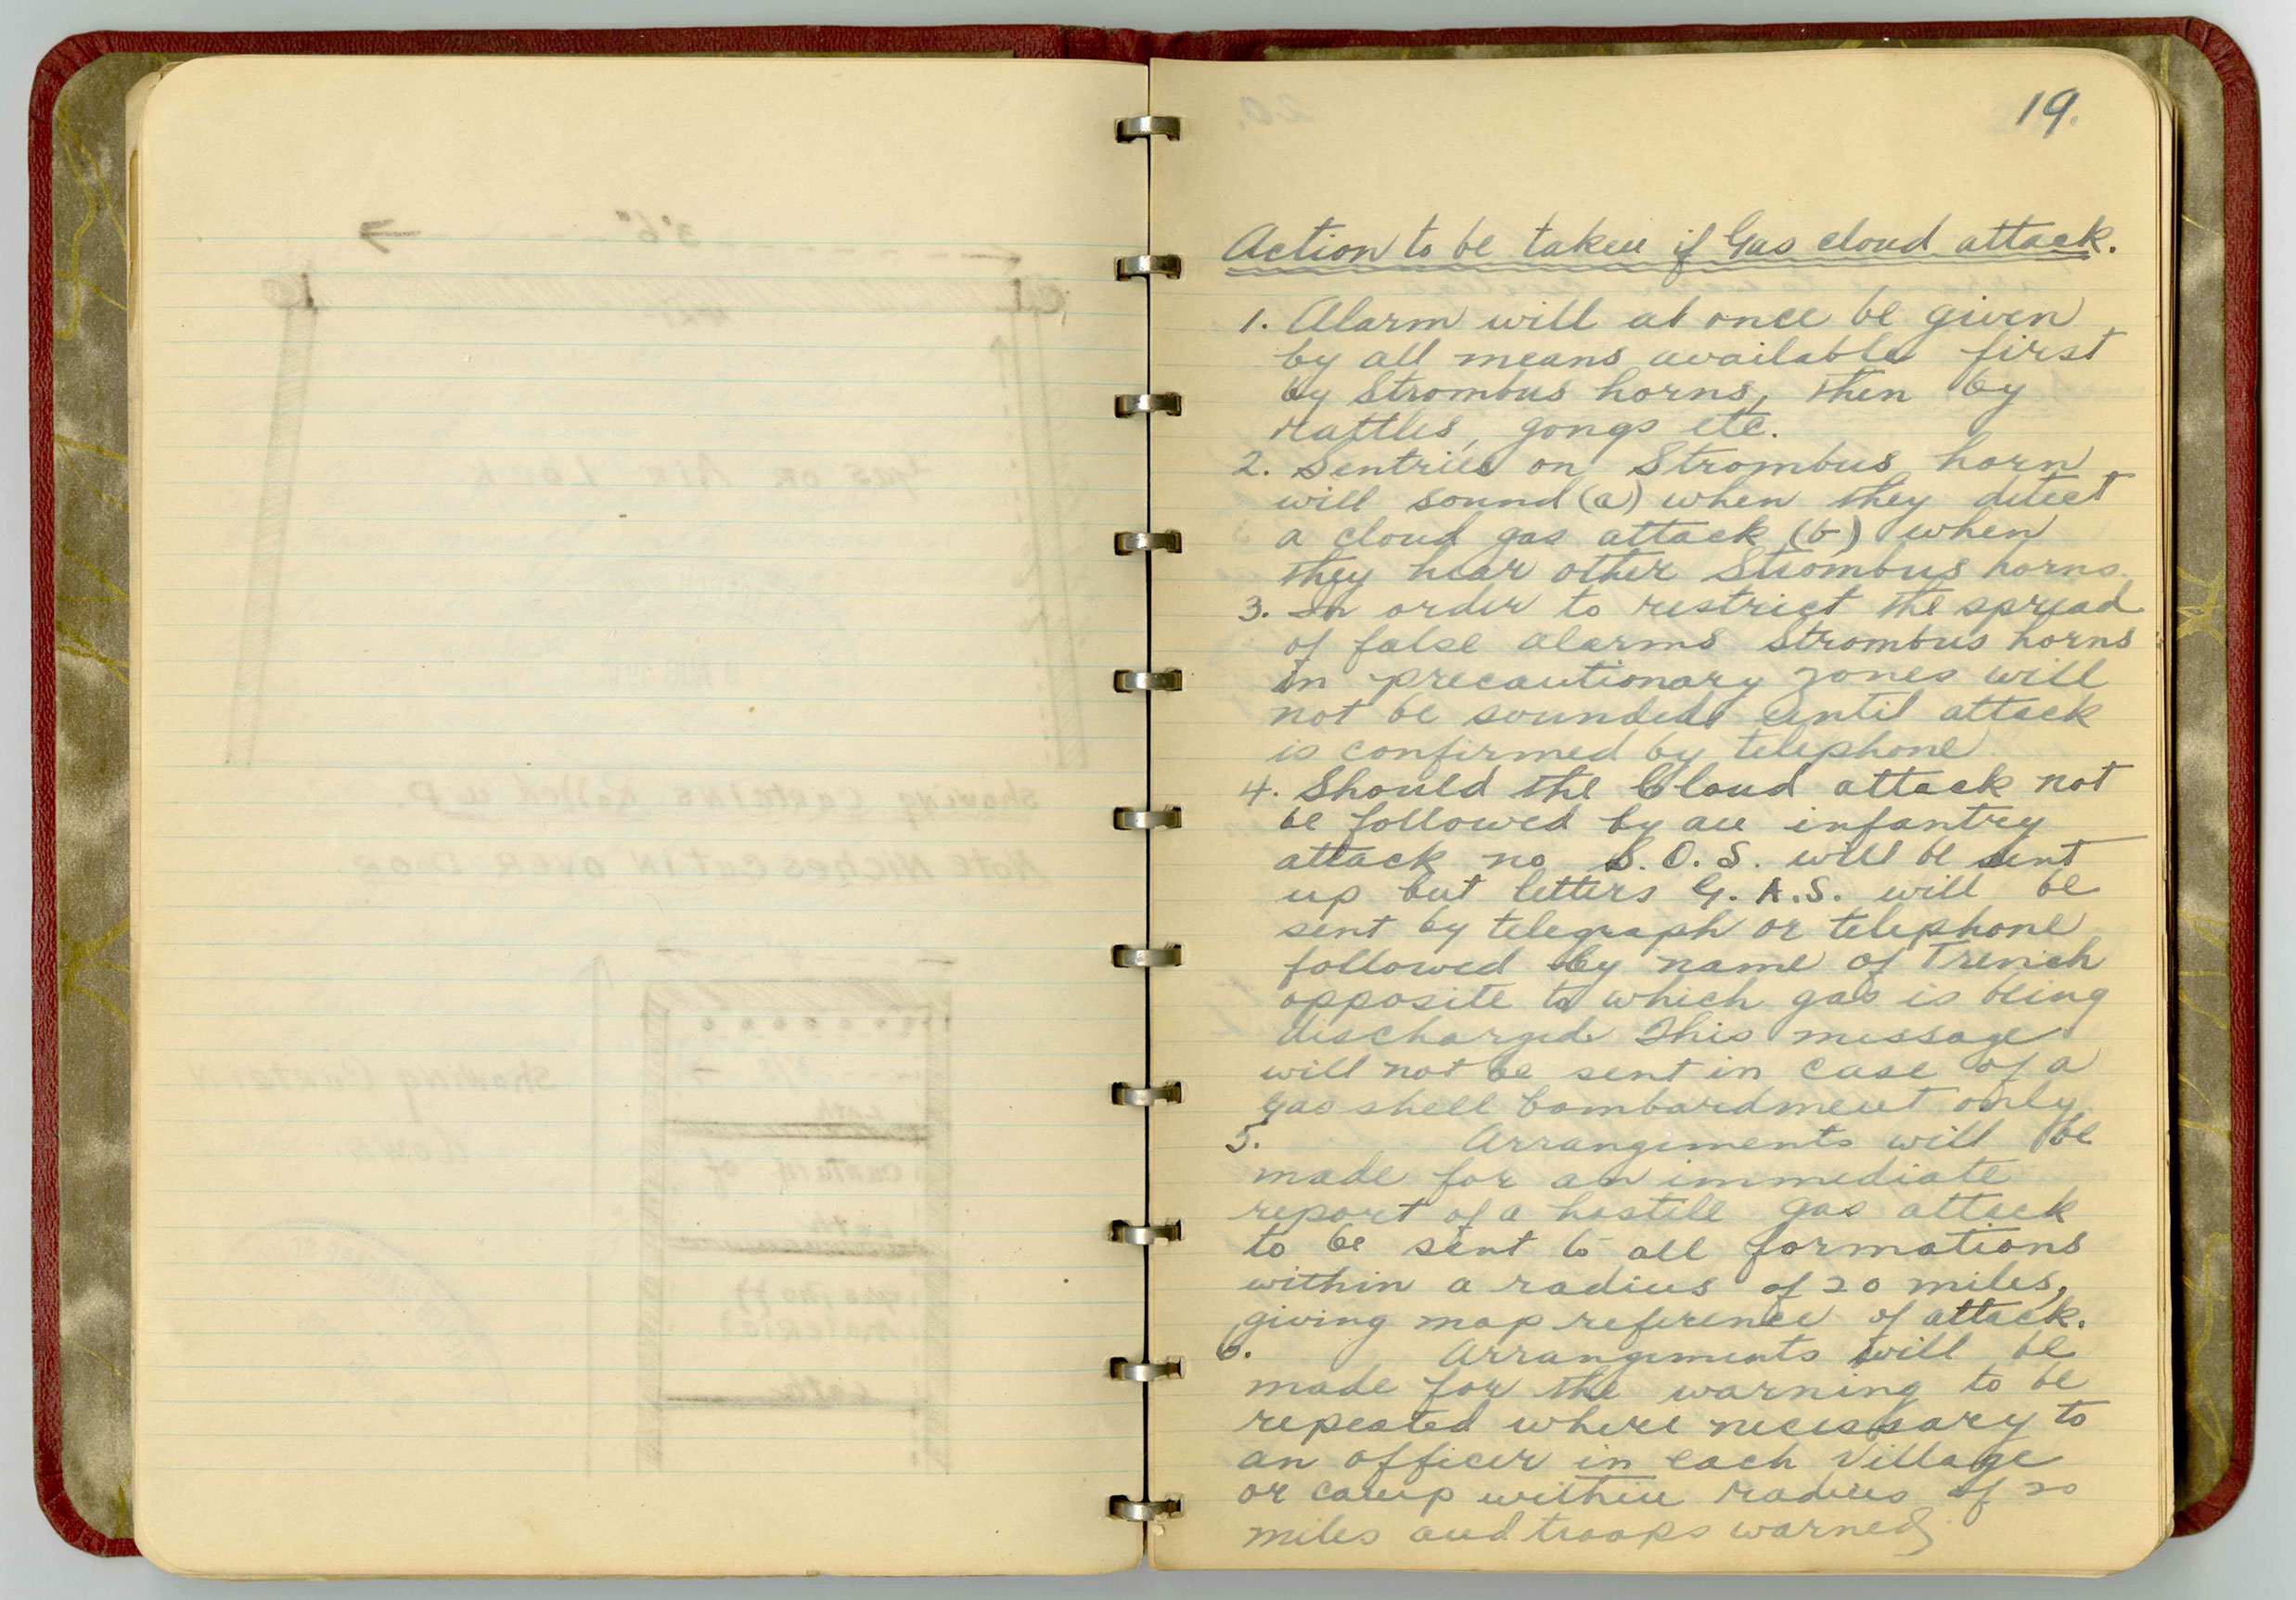 19.
Action to be taken if Gas cloud attack.
1. Alarm will at once be given
by all means available first
by Strombus horns, then by
rattles, gongs etc.
2. Sentries on Strombus horn
will sound (a) when they detect
a cloud gas attack (b) when
they hear other Strombus horns.
3. In order to restrict the spread
of false alarms Strombus horns
in precautionary zones will
not be sounded until attack
is confirmed by telephone
4. Should the Cloud attack not
be followed by an infantry
attack no S.O.S. will be sent
up but letters G.A.S. will be
sent by telegraph or telephone
followed by name of Trench
opposite to which gas is being
discharged. This message
will not be sent in case of a
gas shell bombardment only.
5. Arrangements will be
made for an immediate
report of a hostile gas attack
to be sent to all formations
within a radius of 20 miles,
giving map reference of attack.
6. Arrangements will be
made for the warning to be
repeated where necessary to
an officer in each Village
or camp within radius of 20
miles and troops warned
3'6"
Gas or Air Lock
Showing Curtains Rolled up.
Note Niches cut in over Door
Showing Curtain
down
lath
curtain of
lath
material
lath